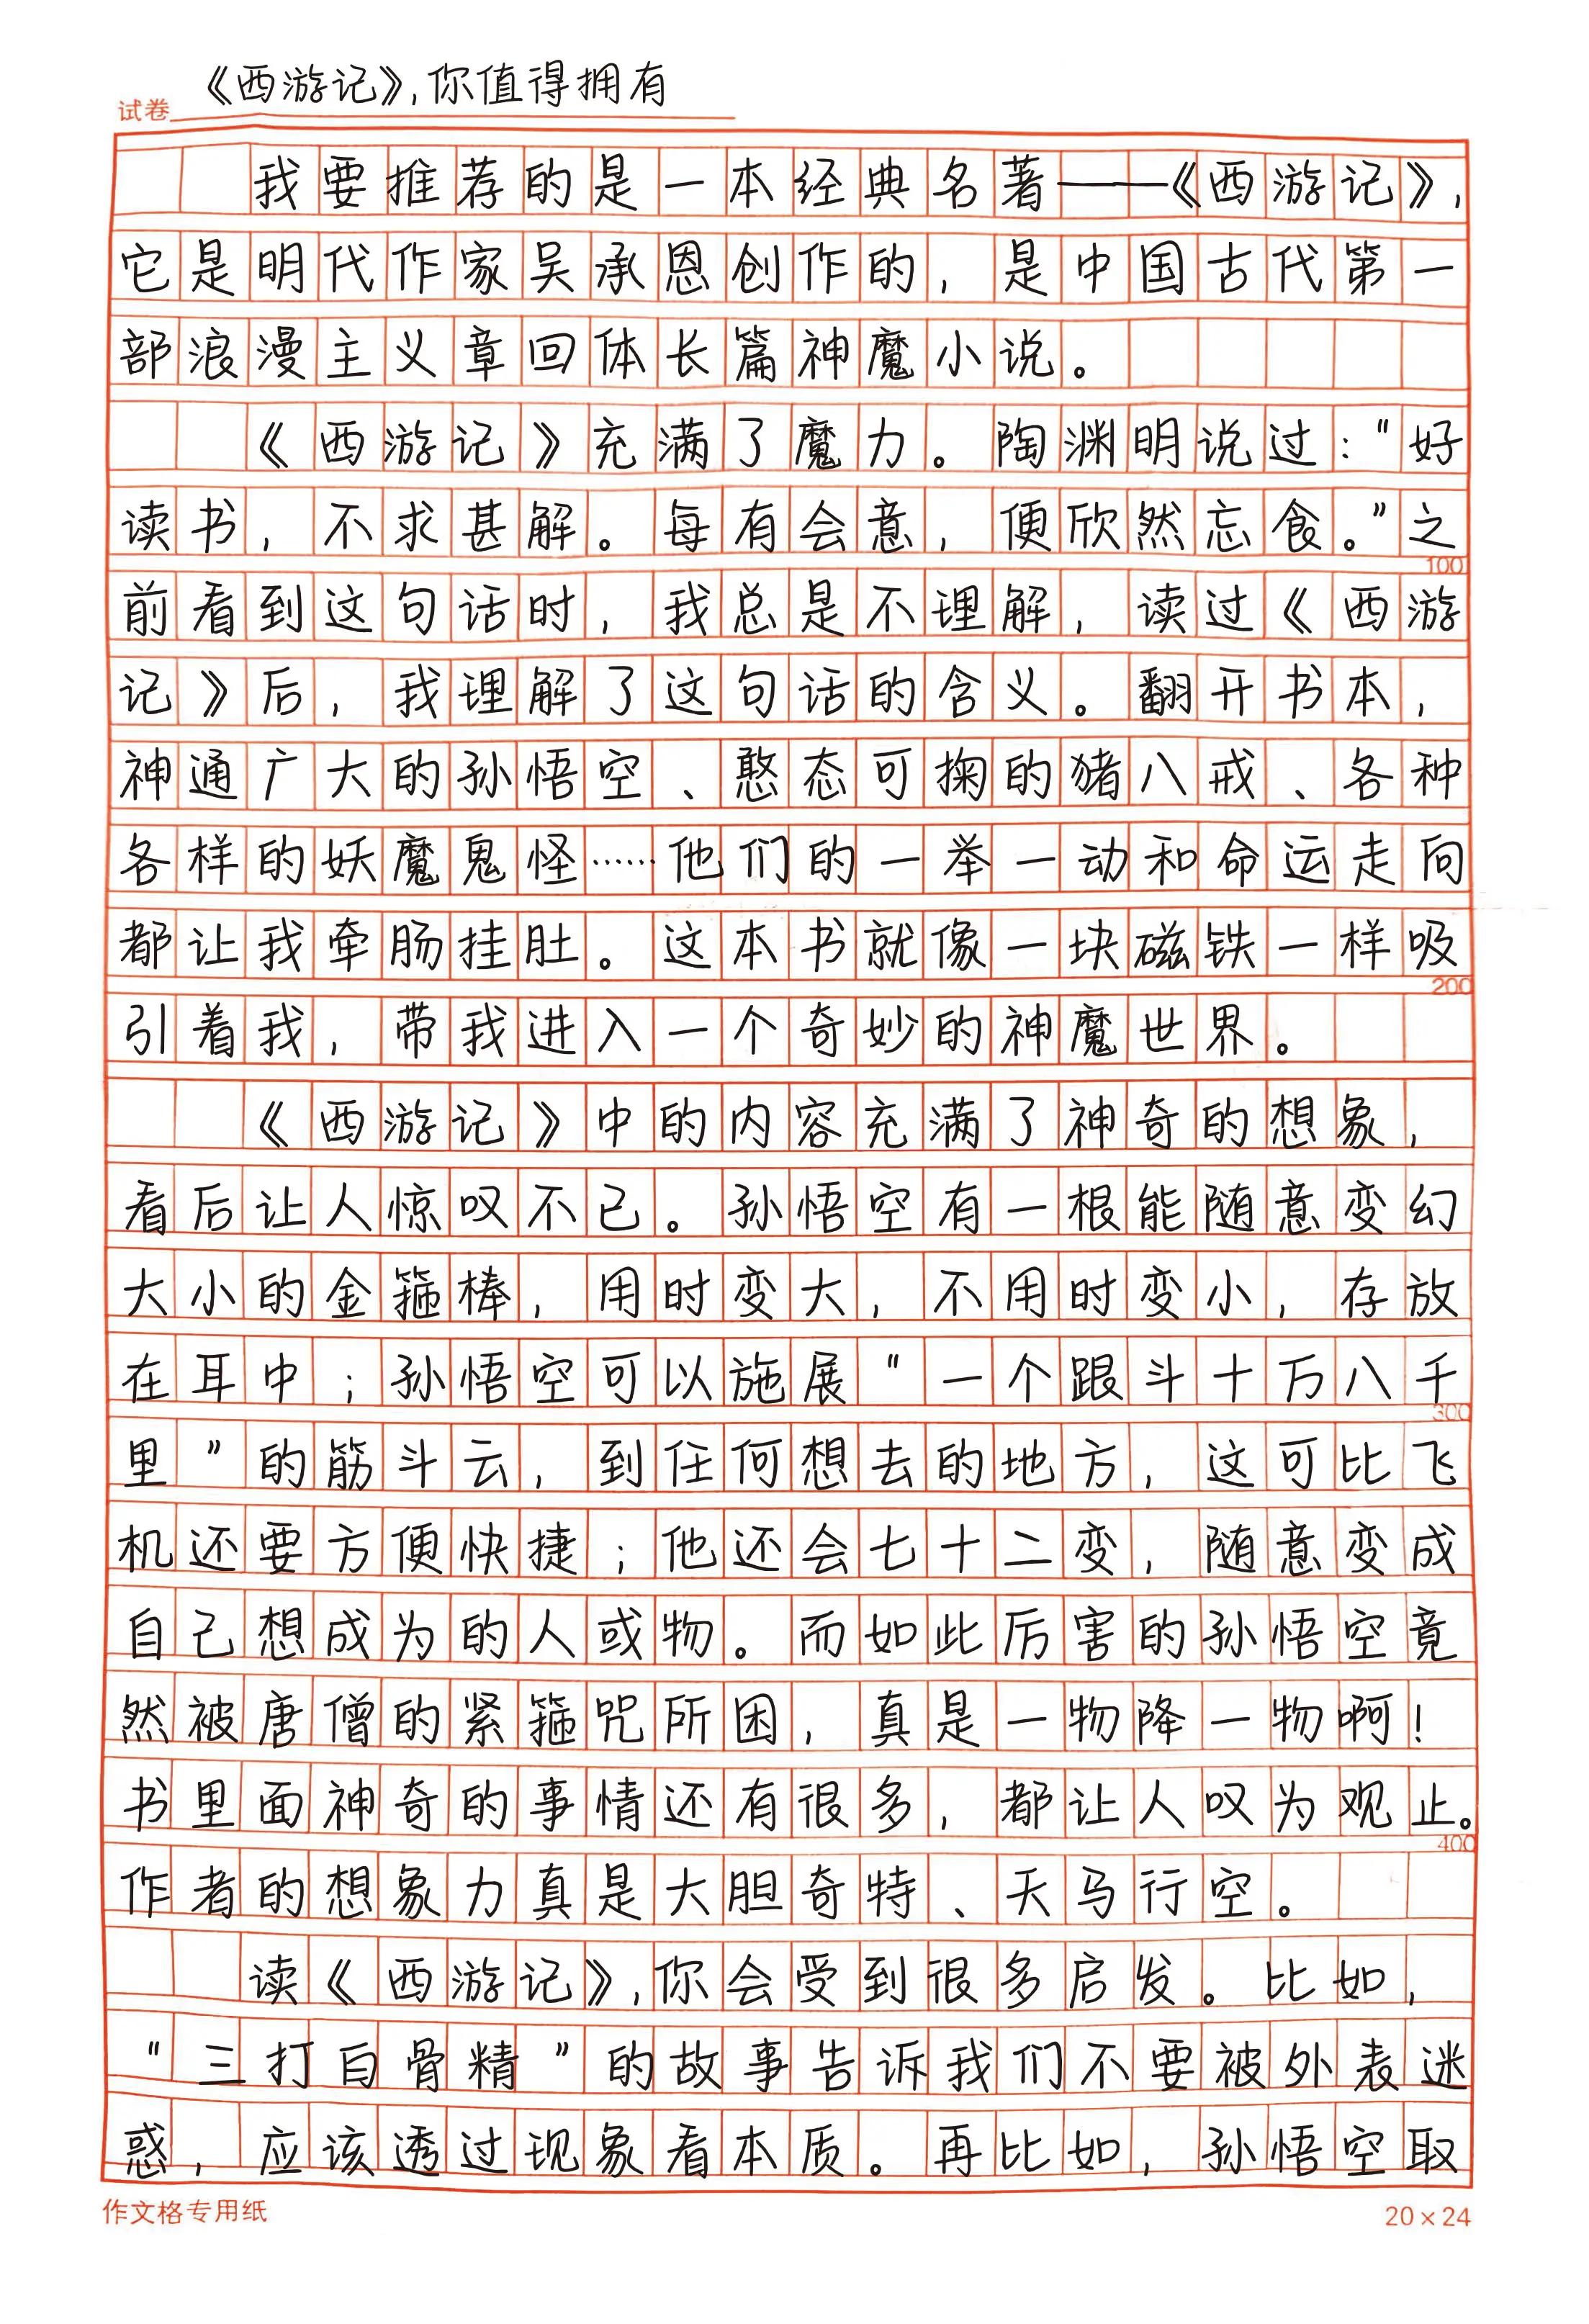 《西游记》,你值得拥有
试卷
我要推荐的是一本经典名著——《西游记》,
它是明代作家吴承恩创作的,是中国古代第一
部浪漫主义章回体长篇神魔小说。
《西游记》充满了魔力。陶渊明说过:"好
读书,不求甚解。每有会意,便欣然忘食。"之
100
前看到这句话时,我总是不理解,读过《西游
记》后,我理解了这句话的含义。翻开书本,
神通广大的孙悟空、憨态可掬的猪八戒、各种
各样的妖魔鬼怪……他们的一举一动和命运走向
都让我牵肠挂肚。这本书就像一块磁铁一样吸
200
引着我,带我进入一个奇妙的神魔世界。
《西游记》中的内容充满了神奇的想象,
看后让人惊叹不已。孙悟空有一根能随意变幻
大小的金箍棒,用时变大,不用时变小,存放
在耳中;孙悟空可以施展"一个跟斗十万八千
300
里"的筋斗云,到任何想去的地方,这可比飞
机还要方便快捷;他还会七十二变,随意变成
自己想成为的人或物。而如此厉害的孙悟空竟
然被唐僧的紧箍咒所困,真是一物降一物啊!
书里面神奇的事情还有很多,都让人叹为观止。
400
作者的想象力真是大胆奇特、天马行空。
读《西游记》,你会受到很多启发。比如,
"三打白骨精"的故事告诉我们不要被外表迷
惑,应该透过现象看本质。再比如,孙悟空取
作文格专用纸
20×24